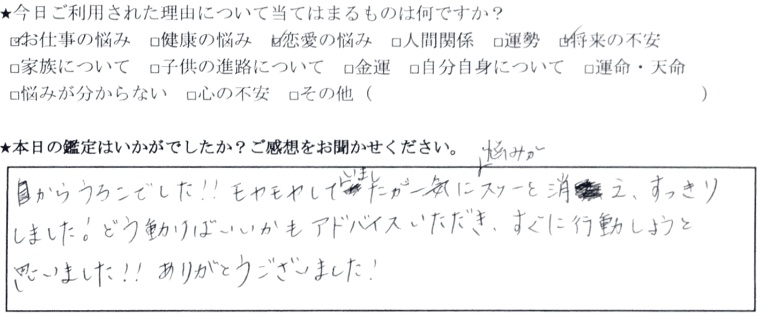 ★今日ご利用された理由について当てはまるものは何ですか？
☑お仕事の悩み □健康の悩み ☑恋愛の悩み □人間関係 □運勢 ☑将来の不安
□家族について □子供の進路について □金運 □自分自身について □運命・天命
□悩みが分からない □心の不安 □その他（ ）
★本日の鑑定はいかがでしたか？ご感想をお聞かせください。
目からうろこでした!! モヤモヤしていましたが悩みが一気にスッーと消え、すっきり
しました! どう動けばいいかもアドバイスいただき、すぐに行動しようと
思いました!! ありがとうございました!